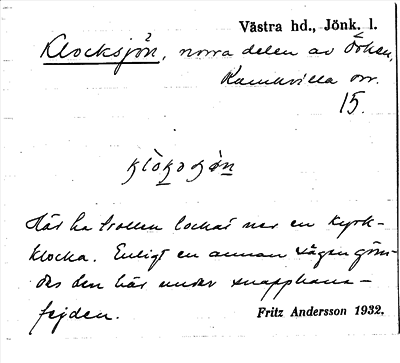 Västra hd., Jönk. l.
Klocksjön, norra delen av Öxken,
Ramkvilla
15.
Här ha trollen lockat ner en kyrk-
klocka. Enligt en annan sägen göm-
des den här under snapphane-
fejden.
Fritz Andersson 1932.